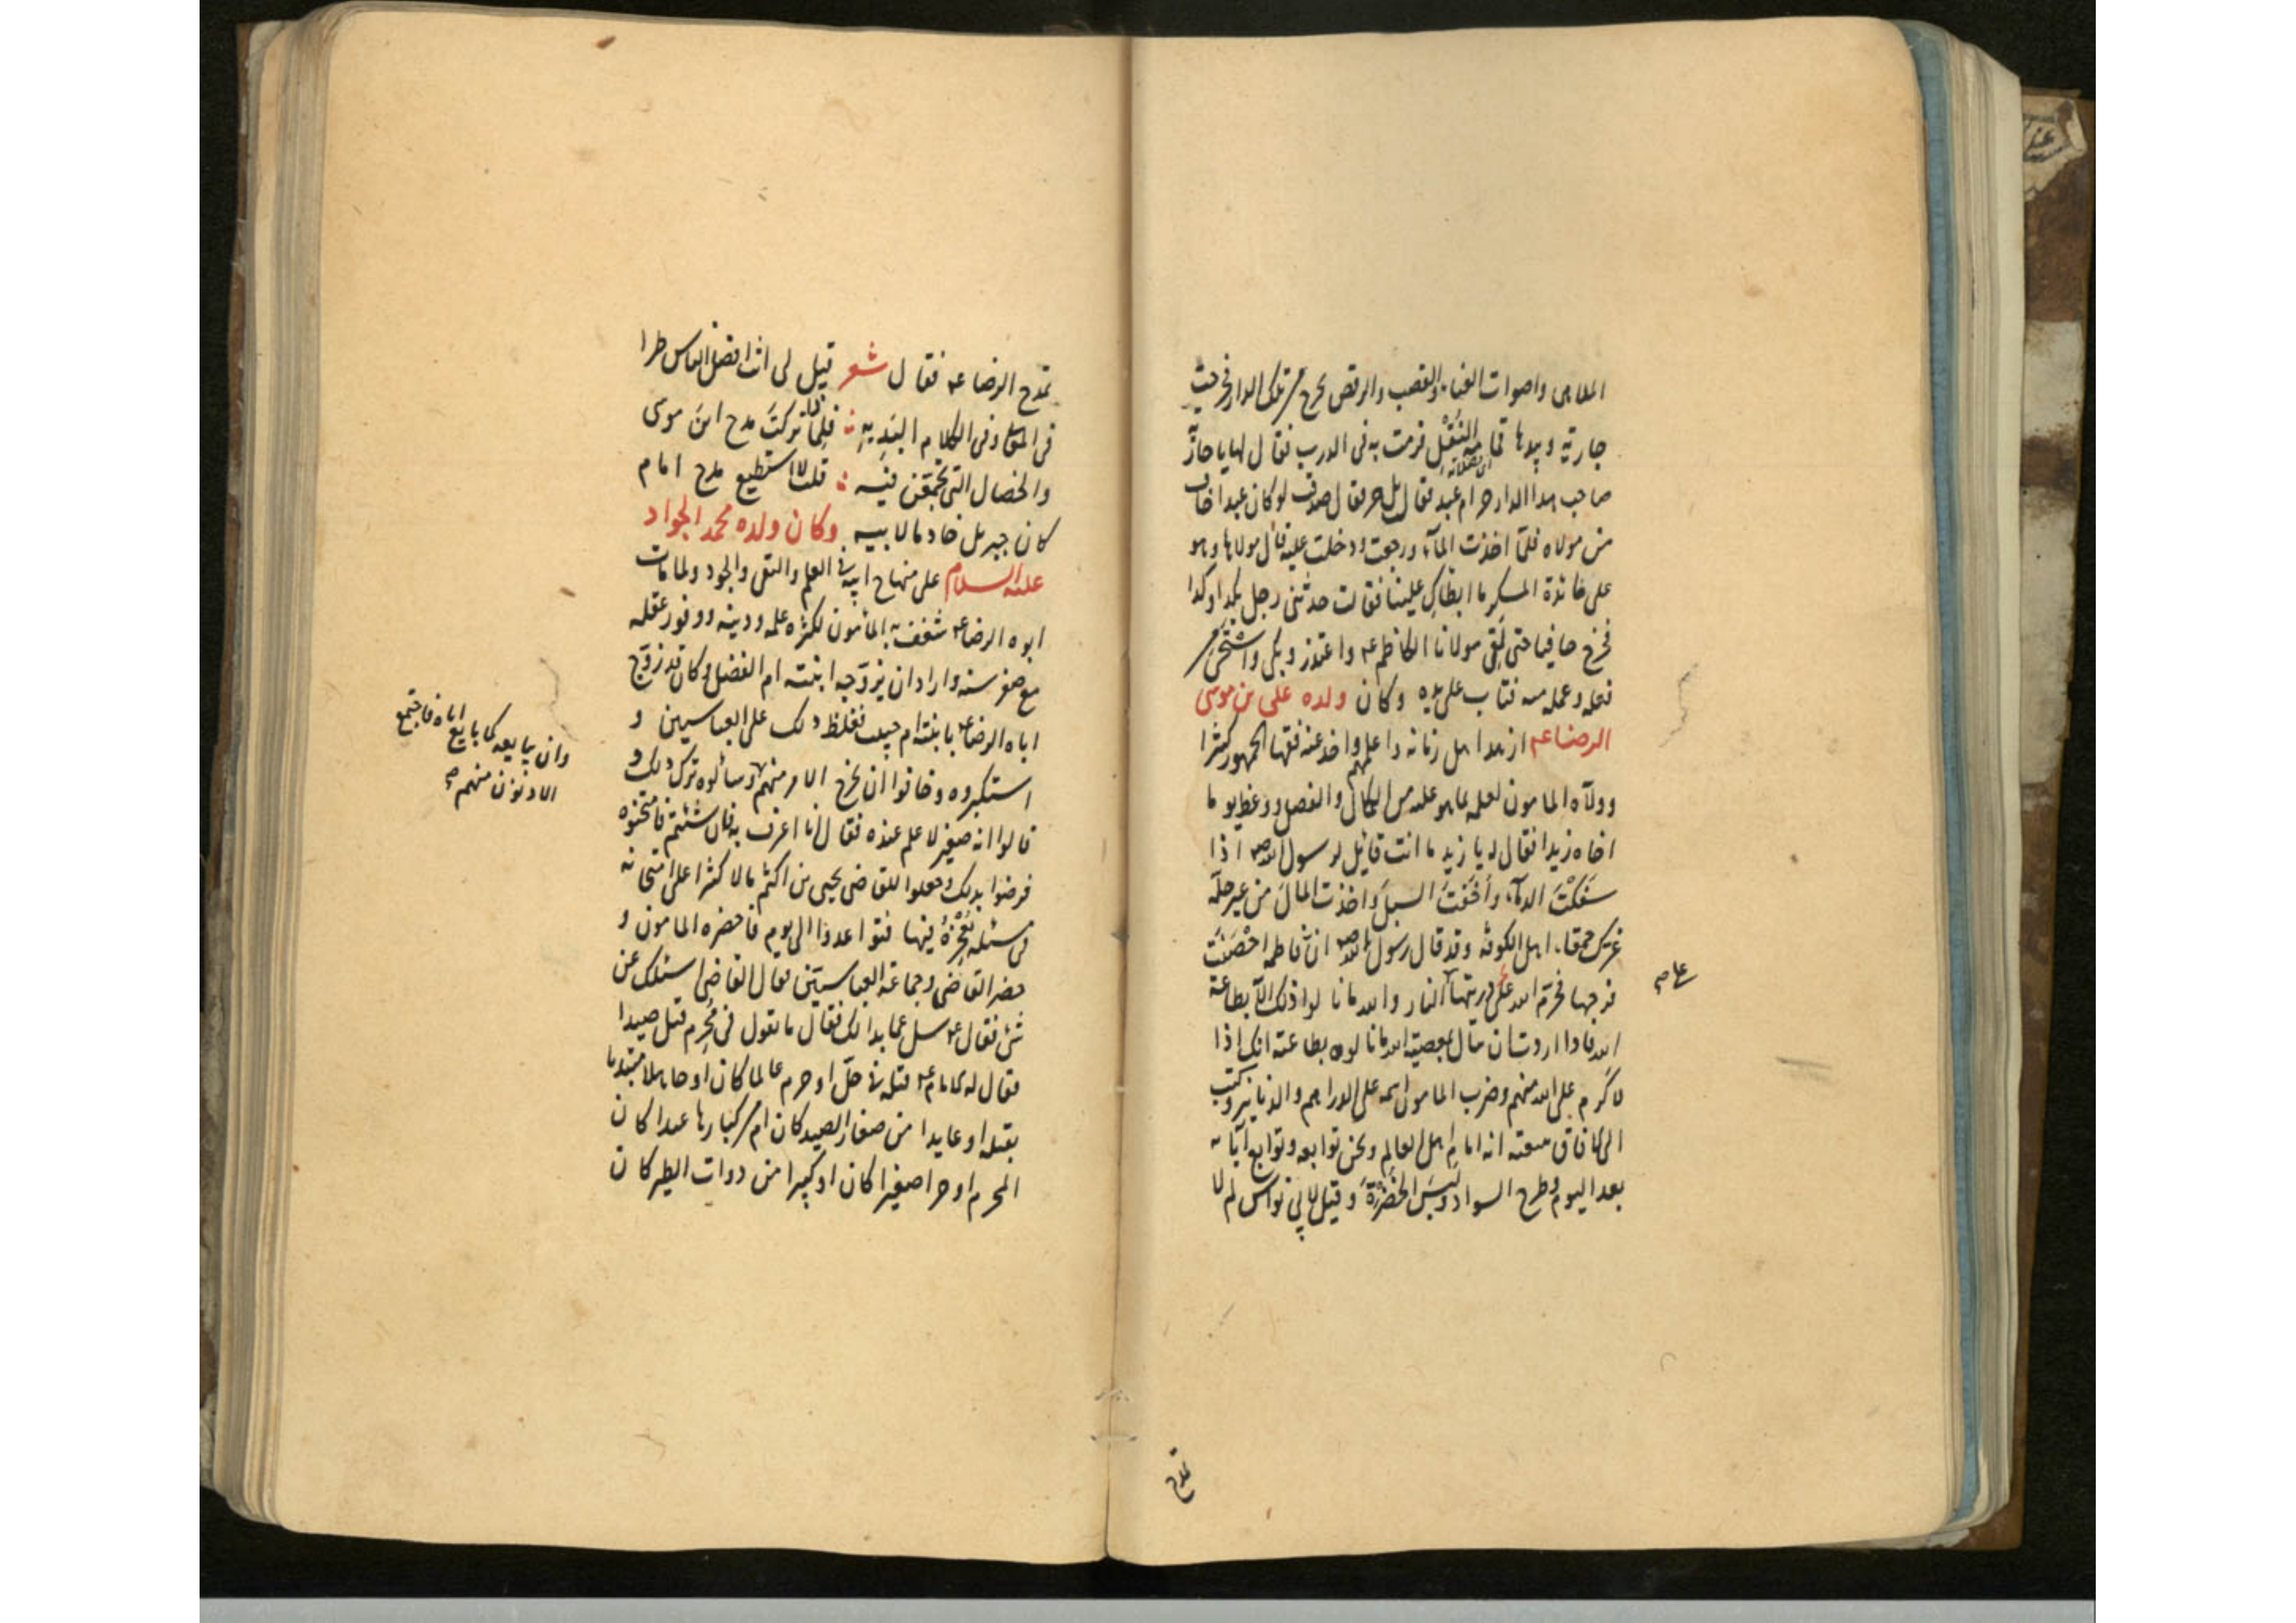 الملاهى واصوات الغناء والقصب والرقص يخرج من تلك الدار فخرجت
جارية وبيدها قمامة النقل فرمت به فى الدرب فقال لها يا جارية
صاحب هذا الدار حر ام عبد فقال بل حر فقال صدقت لو كان عبدا خاف
من مولاه فلما اخذت الماء ورجعت ودخلت عليه قال مولاها وهو
على مائدة المسكر ما ابطاك علينا فقالت حدثنى رجل بكذا وكذا
فخرج حافيا حتى لقى مولانا الكاظم ع واعتذر وبكى واستحيى من
فعله وعمله منه فتاب على يده وكان ولده على بن موسى
الرضا ع ازهد اهل زمانه واعلمهم واخذ عنه فقهاء الجمهور كثيرا
وولاه المامون لعلمه بما هو عليه من الكمال والفضل ووعظ يوما
اخاه زيدا فقال له يا زيد ما انت قائل لرسول الله ص اذا
سفكت الدماء واخفت السبل واخذت المال من غير حله
غرك حمقاء اهل الكوفة وقد قال رسول الله ص ان فاطمة احصنت
فرجها فحرم الله على ذريتها النار والله ما نالوا ذلك الا بطاعة
الله فاذا اردت ان تنال بمعصية الله ما نالوه بطاعته انك اذا
لاكرم على الله منهم وضرب المامون اسمه على الدراهم والدنانير وكتب
الى الافاق ببيعته انه امام اهل العالم ونحن توابعه وتوابع آبائه
بعد اليوم وطرح السواد ولبس الخضرة وقيل لابى نواس لم لا
على ص
تمدح
تمدح الرضا ع فقال شعر قيل لى انت افضل الناس طرا
فى المعانى وفى الكلام البديه فلماذا تركت مدح ابن موسى
والخصال التى تجمعن فيه قلت لا استطيع مدح امام
كان جبريل خادما لابيه وكان ولده محمد الجواد
عليه السلام على منهاج ابيه فى العلم والتقى والجود ولما مات
ابوه الرضا ع شغف به المأمون لكثرة علمه ودينه ووفور عقله
مع صغر سنه واراد ان يزوجه ابنته ام الفضل وكان قد زوج
اباه الرضا ع بابنته ام حبيب فغلظ ذلك على العباسيين و
استكبروه وخافوا ان يخرج الامر منهم وسألوه ترك ذلك و
قالوا انه صغير لا علم عنده فقال انا اعرف به فان شئتم فامتحنوه
فرضوا بذلك وجعلوا للقاضى يحيى بن اكثم مالا كثيرا على امتحانه
فى مسئلة يعجزه فيها فتواعدوا الى يوم فاحضره المامون و
حضر القاضى وجماعة العباسيين فقال القاضى اسئلك عن
شئ فقال ع سل عما بدا لك فقال ما تقول فى محرم قتل صيدا
فقال له الامام ع قتله فى حل او حرم عالما كان او جاهلا مبتدئا
بقتله او عايدا من صغار الصيد كان ام من كبارها عبدا كان
المحرم او حرا صغيرا كان او كبيرا من ذوات الطير كان
وان يبايعه كما بايع اباه فاجتمع
الادنون منهم ص